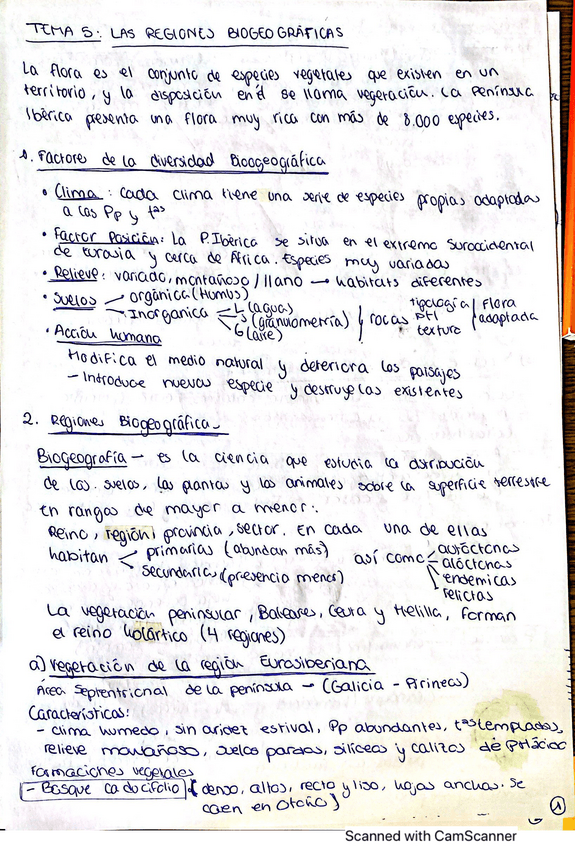 TEMA 5: LAS REGIONES BIOGEOGRÁFICAS
La flora es el conjunto de especies vegetales que existen en un
territorio, y la disposición en él se llama vegetación. La Península
Ibérica presenta una flora muy rica con más de 8.000 especies.
1. Factores de la diversidad Biogeográfica
• Clima: cada clima tiene una serie de especies propias adaptadas
a las Pp y tas
• Factor Posición: La P. Ibérica se situa en el extremo suroccidental
de Eurasia y cerca de África. Especies muy variadas
• Relieve: variado, montañoso / llano → habitats diferentes
• Suelos orgánica (Humus)
Inorganica L (agua)
S (granulometría) rocas tipología PH textura flora adaptada
G (aire)
• Acción humana
Modifica el medio natural y deteriora los paisajes
- Introduce nuevas especie y destruye las existentes
2. Regiones Biogeográfica-
Biogeografía - es la ciencia que estudia la distribución
de los suelos, las plantas y los animales sobre la superficie terrestre
en rangos de mayor a menor:
Reino, región, provincia, sector. En cada una de ellas
habitan primarias (abundan más) así como autóctonas
secundarias (presencia menor) alóctonas
endemicas
relictas
La vegetación peninsular, Baleares, Ceuta y Melilla, forman
el reino holártico (4 regiones)
a) Vegetación de la región Eurosiberiana
Área septentrional de la península → (Galicia - Pirineos)
Características:
- clima humedo, sin aridez estival, Pp abundantes, tas templadas,
relieve montañoso, suelos pardos, silíceos y calizos
Formaciones vegetales
- Bosque caducifolio { denso, altos, recto y liso, hojas anchas. Se
caen en Otoño }
1
Scanned with CamScanner